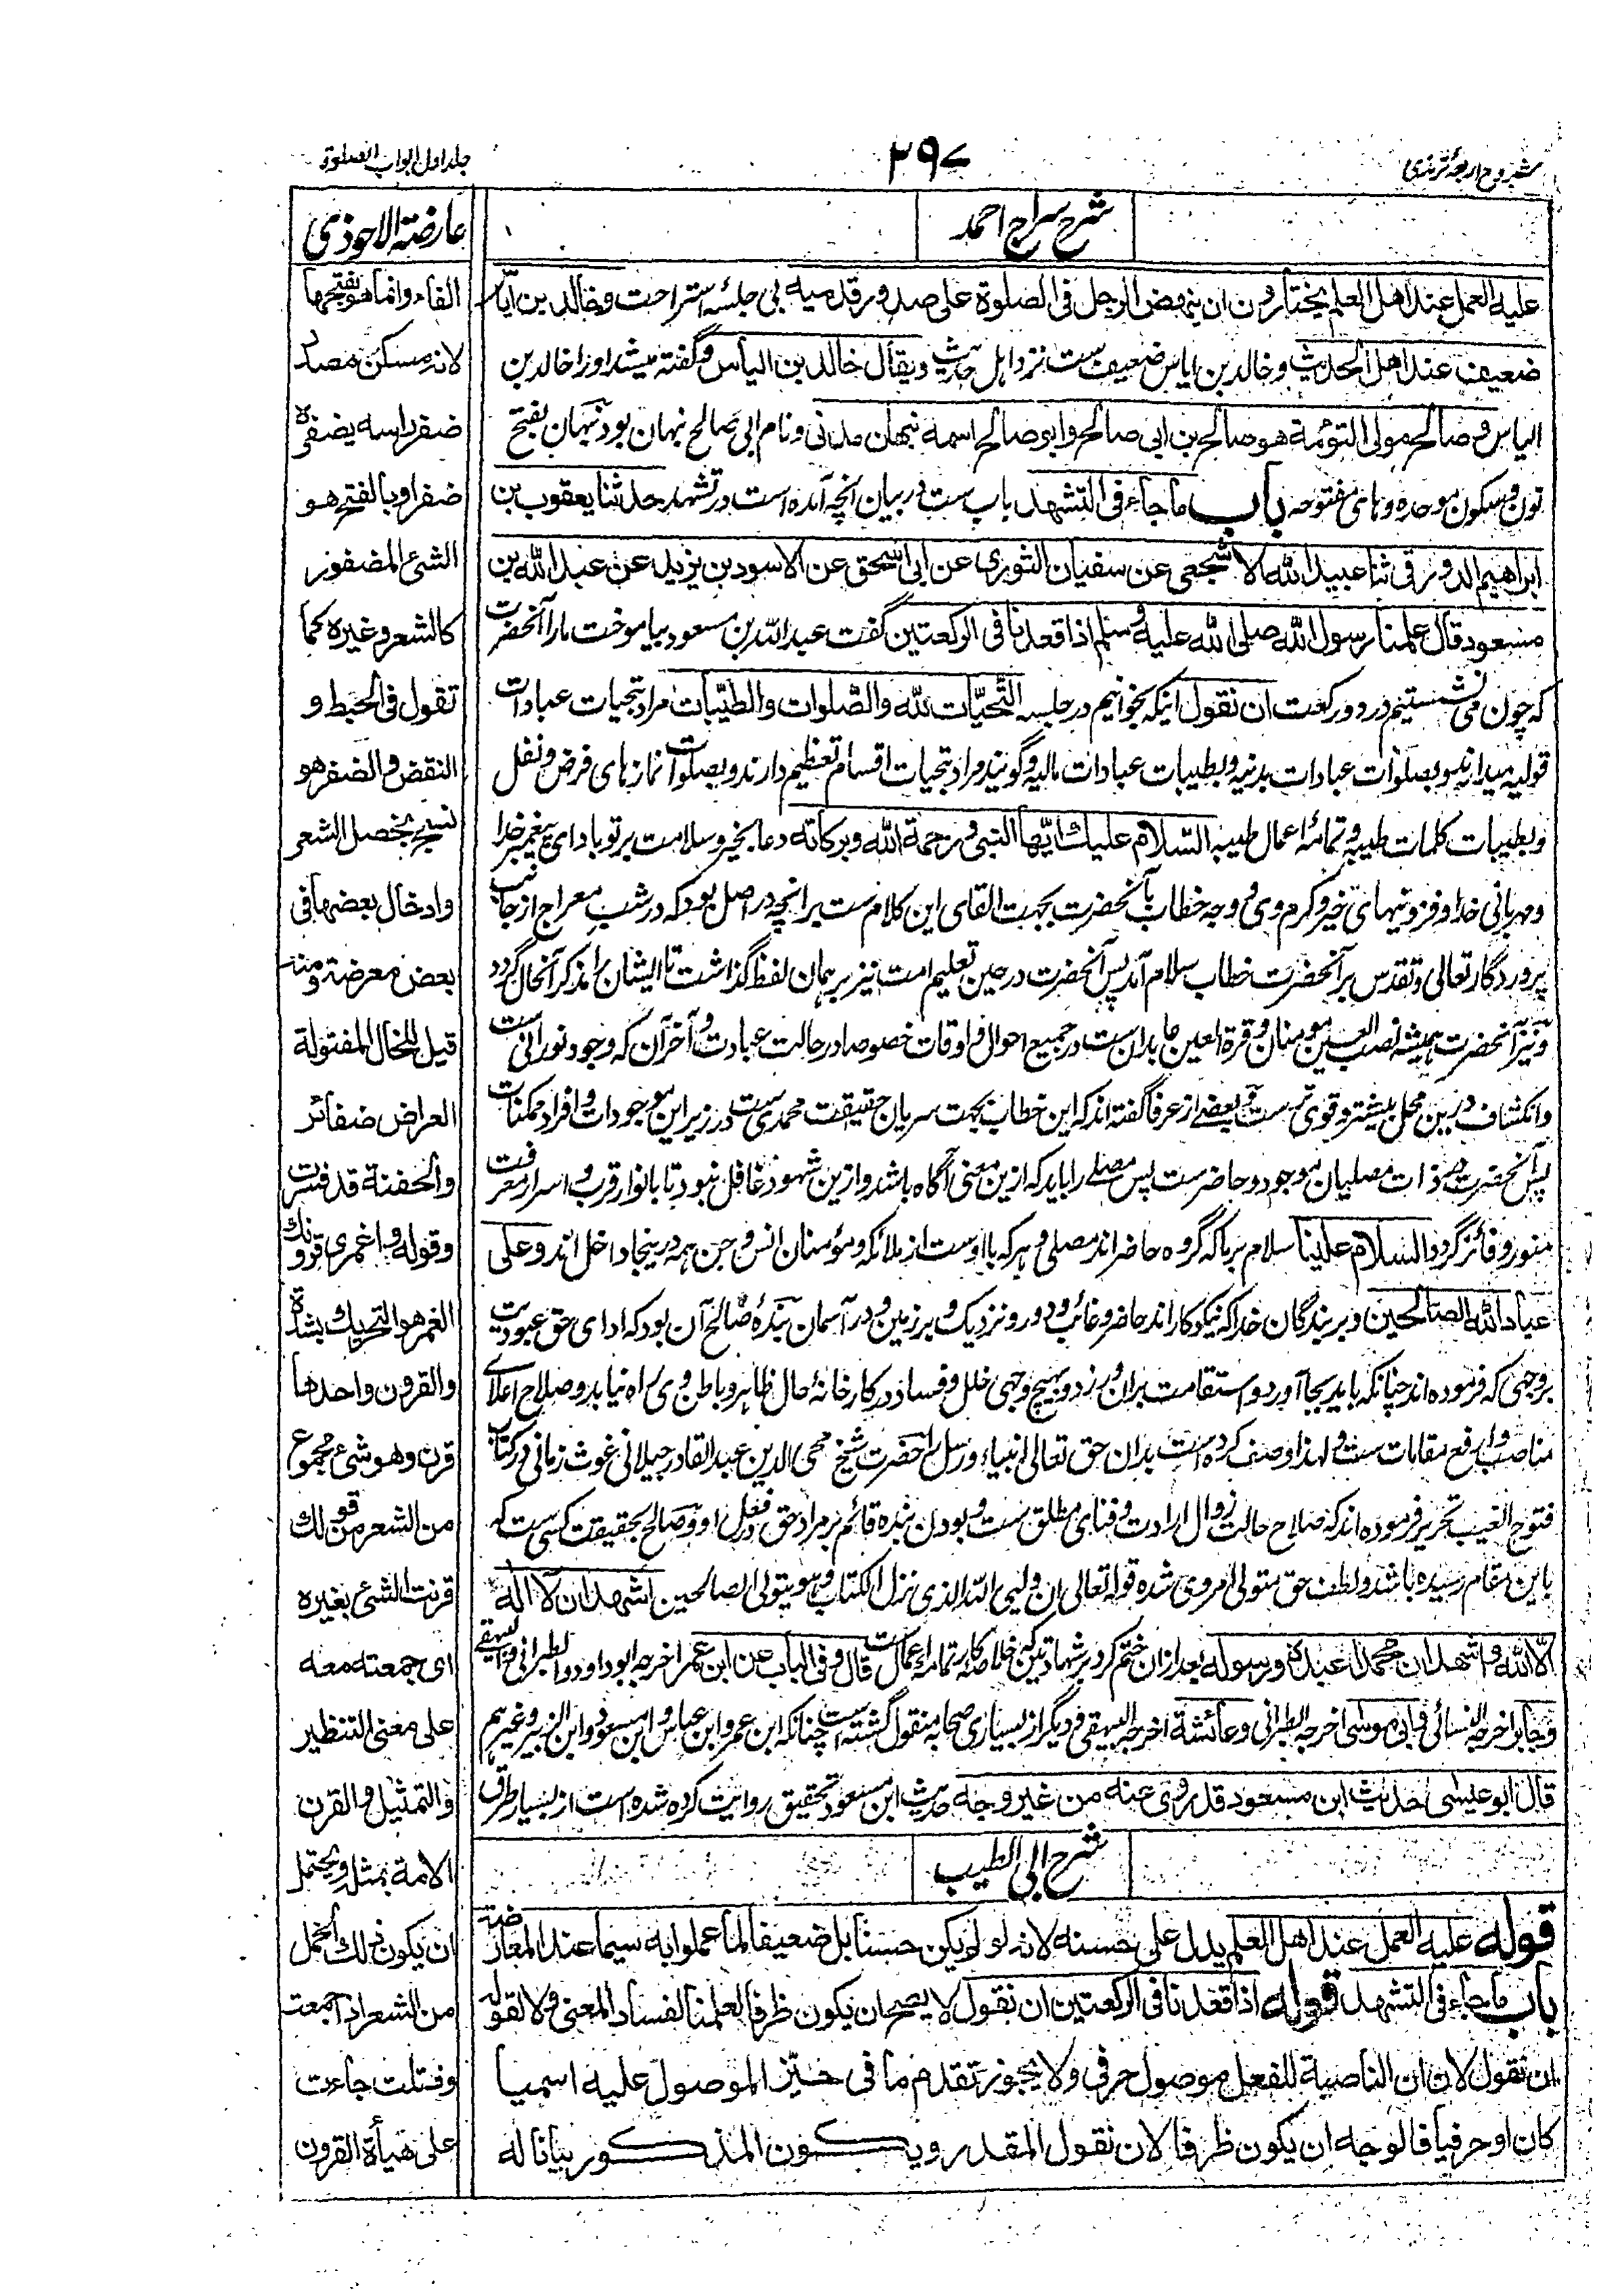 شروح اربعۂ ترمذی
۳۹۷
جلد اول ابواب الصلوة
شرح سراج احمد
علیه العمل عند اهل العلم یختارون ان ینهض الرجل فی الصلوة علی صدور قدمیه بی جلسۂ استراحت وخالد بن ایاس
ضعیف عند اهل الحدیث وخالد بن ایاس ضعیف ست نزد اہل حدیث ویقال خالد بن الیاس وگفته میشد او را خالد بن
الیاس وصالح مولی التوئمة هو صالح بن ابی صالح وابو صالح اسمه نبهان مدنی ونام ابی صالح نبهان بود نبهان بفتح
نون وسکون موحده وهای مفتوحه باب ما جاء فی التشهد باب ست در بیان انچه آمده است در تشهد حدثنا یعقوب بن
ابراهیم الدورقی ثنا عبید الله الاشجعی عن سفیان الثوری عن ابی اسحق عن الاسود بن یزید عن عبد الله بن
مسعود قال علمنا رسول الله صلی الله علیه وسلم اذا قعدنا فی الرکعتین گفت عبد الله بن مسعود بیاموخت مارا آنحضرت
که چون می نشستیم در دو رکعت ان نقول اینکه بخوانیم در جلسه التحیّات لله والصّلوات والطیّبات مراد بتحیات عبادات
قولیه میدارند وبصلوات عبادات بدنیه وبطیبات عبادات مالیه وگویند مراد بتحیات اقسام تعظیم دارند وبصلوات نمازهای فرض ونفل
وبطیبات کلمات طیبه وتمامۂ اعمال طیبه السّلام علیك ایّها النبی ورحمة الله وبرکاته دعا بخیر وسلامت بر تو باد ای پیغمبر خدا
ومهربانی خدا وفزونیهای خیر وکرم وی و وجه خطاب بآنحضرت بجهت القای این کلام ست بر انچه در اصل بود که در شب معراج از جانب
پروردگار تعالی وتقدس بر آنحضرت خطاب سلام آمد پس آنحضرت در حین تعلیم امت نیز بر همان لفظ گذاشت تا ایشان را مذکر آنحال گردد
ونیز آنحضرت همیشه نصب العین مومنان وقرة العین عابدان ست در جمیع احوال واوقات خصوصا در حالت عبادت وآخر آن که وجود نورانیت
وانکشاف درین محل بیشتر وقوی تر ست وبعضے از عرفا گفته اند که این خطاب بجهت سریان حقیقت محمدی ست در زیر این موجودات وافراد ممکنات
پس آنحضرت در ذات مصلیان موجود وحاضر ست پس مصلے را باید که ازین معنی آگاه باشد وازین شهود غافل نبود تا بانوار قرب واسرار معرفت
منور وفائز گردد السلام علینا سلام بر ما که گروه حاضر اند مصلی وهر که با اوست از ملائکه ومؤمنان انس وجن همه درینجا داخل اند وعلی
عباد الله الصالحین وبر بندگان خدا که نیکوکار اند حاضر وغائب ودور ونزدیک وبر زمین ودر آسمان بندۂ صالح آن بود که ادای حق عبودیت
بر وجهی که فرموده اند چنانکه باید بجا آورد واستقامت بران ورزد وبهیچ وجهی خلل وفساد در کارخانۂ حال ظاهر وباطن وی راه نیابد وصلاح اعلای
مناصب وارفع مقامات ست ولهذا وصف کرده است بدان حق تعالی انبیاء ورسل را حضرت شیخ محی الدین عبد القادر جیلانی غوث زمانی در کتاب
فتوح الغیب تحریر فرموده اند که صلاح حالت زوال ارادت وفنای مطلق ست وبودن بنده قائم بر مراد حق وفعل او وصالح بحقیقت کسی ست که
باین مقام رسیده باشد ولطف حق متولی امر وی شده قوله تعالی ان ولیی الله الذی نزل الکتاب وهو یتولی الصالحین اشهد ان لا اله
الّا الله واشهد ان محمدا عبده ورسوله بعد ازان ختم کرد بر شهادتین که خلاصۂ کار تمامۂ اعمال ست قال وفی الباب عن ابن عمر اخرجه ابو داود والطبرانی والبیهقی
وجابر اخرجه النسائی وابی موسی اخرجه الطبرانی وعائشة اخرجه البیهقی ودیگر از بسیاری صحابه منقول گشته است چنانکه ابن عمر وابن عباس وابن مسعود وابن الزبیر وغیرهم
قال ابو عیسی حدیث ابن مسعود قد روی عنه من غیر وجه حدیث ابن مسعود تحقیق روایت کرده شده است از بسیار طرق
شرح ابی الطیب
قوله علیه العمل عند اهل العلم یدل علی حسنه لانه لو لم یکن حسنا بل ضعیفا لما عملوا به سیما عند المعارضة
باب ما جاء فی التشهد قوله اذا قعدنا فی الرکعتین ان نقول لا یصح ان یکون ظرفا لعلمنا لفساد المعنی ولا لقوله
ان نقول لان ان الناصبة للفعل موصول حرفی ولا یجوز تقدم ما فی حیّز الموصول علیه اسمیا
کان او حرفیا فالوجه ان یکون ظرفا لان نقول المقدر ویکون المذکور بیانا له
عارضة الاحوذی
الفاء وانما هو بفتحها
لانه مسکن مصدر
ضفر راسه یضفره
ضفرا وبالفتح هو
الشئ المضفور
کالشعر وغیره کما
تقول فی الخیط و
النقض والضفر هو
نسج خصل الشعر
وادخال بعضها فی
بعض معرضة ومنه
قیل للخال المفتولة
العراض ضفائر
والحفنة قد فسرت
وقوله واغمزی قرونك
الغمز هو التحریك بشدة
والقرون واحدها
قرن وهو شئ مجموع
من الشعر من قولك
قرنت الشئ بغیره
ای جمعته معه
علی معنی التنظیر
والتمثیل والقرن
الامة بمثل ویحتمل
ان یکون ذلك الخمل
من الشعر اذا جمعت
وفتلت جاءت
علی هیأة القرون